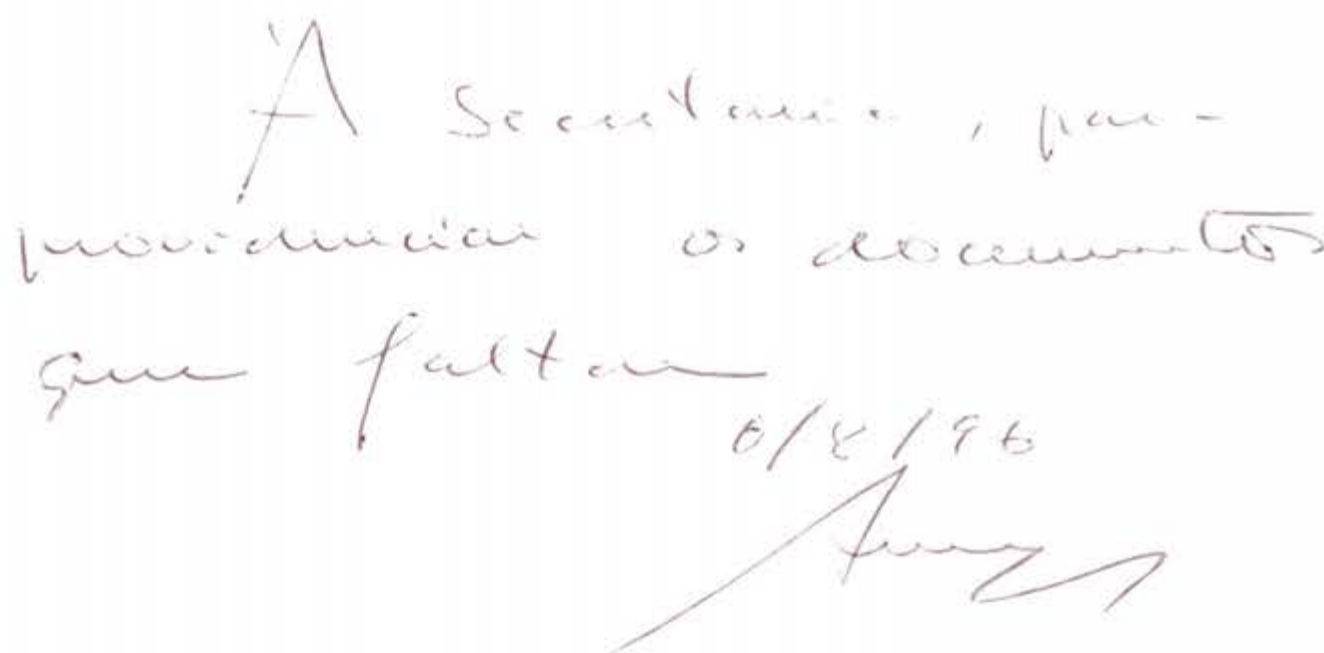 À Secretaria, para
providenciar os documentos
que faltam
6/8/96